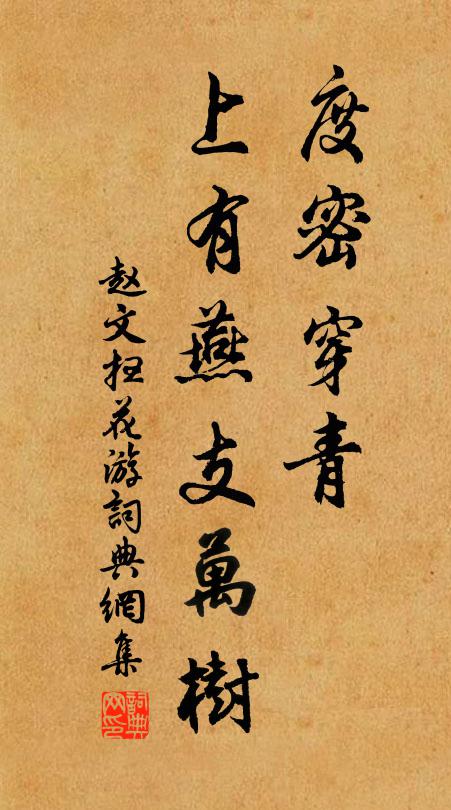 度密穿青
上有燕支萬樹
赵文抂花游詞典網集
詞典网印